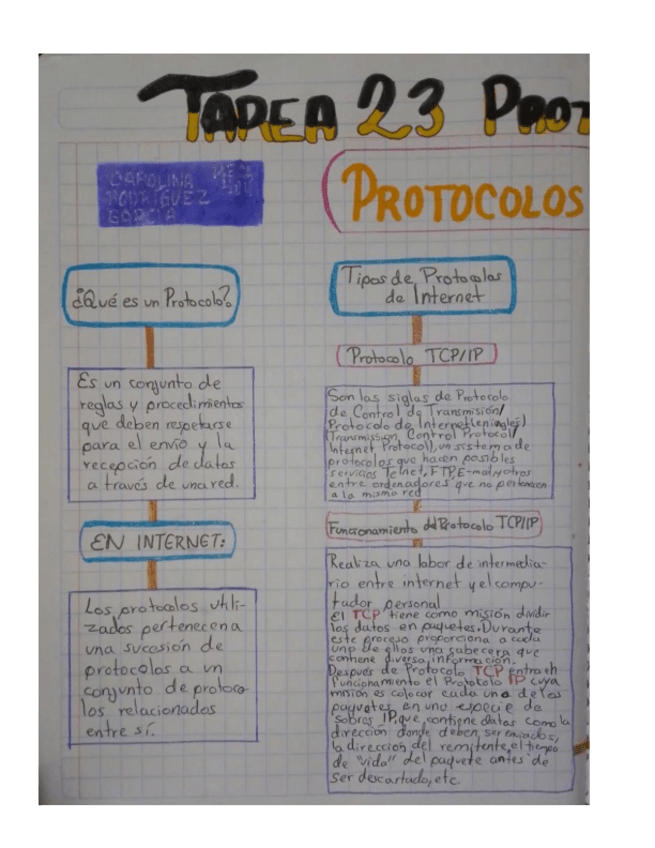 TAREA 23 PROT
CAROLINA
RODRIGUEZ
GARCIA
PROTOCOLOS
¿Qué es un Protocolo?
Es un conjunto de
reglas y procedimientos
que deben respetarse
para el envío y la
recepción de datos
a través de una red.
EN INTERNET:
Los protocolos utili-
zados pertenecen a
una sucesión de
protocolos a un
conjunto de protoco
los relacionados
entre sí.
Tipos de Protocolos
de Internet
Protocolo TCP/IP
Son las siglas de Protocolo
de Control de Transmisión/
Protocolo de Internet(en inglés)
(Transmission Control Protocol/
Internet Protocol), un sistema de
protocolos que hacen posibles
servicios Telnet, FTP, E-mail, y otros
entre ordenadores que no pertenecen
a la misma red
Funcionamiento del Protocolo TCP/IP
Realiza una labor de intermedia-
rio entre internet y el compu-
tador personal
El TCP tiene como misión dividir
los datos en paquetes. Durante
este proceso proporciona a cada
uno de ellos una cabecera que
contiene diversa información.
Después de Protocolo TCP entra en
Funcionamiento el Protocolo IP cuya
misión es colocar cada uno de los
paquetes en una especie de
sobres IP, que contiene datos como la
dirección donde deben ser enviados,
la dirección del remitente, el tiempo
de "vida" del paquete antes de
ser descartado, etc.